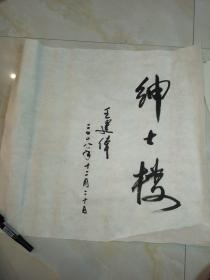 绅士楼
王建伟
二〇〇八年十二月二十日